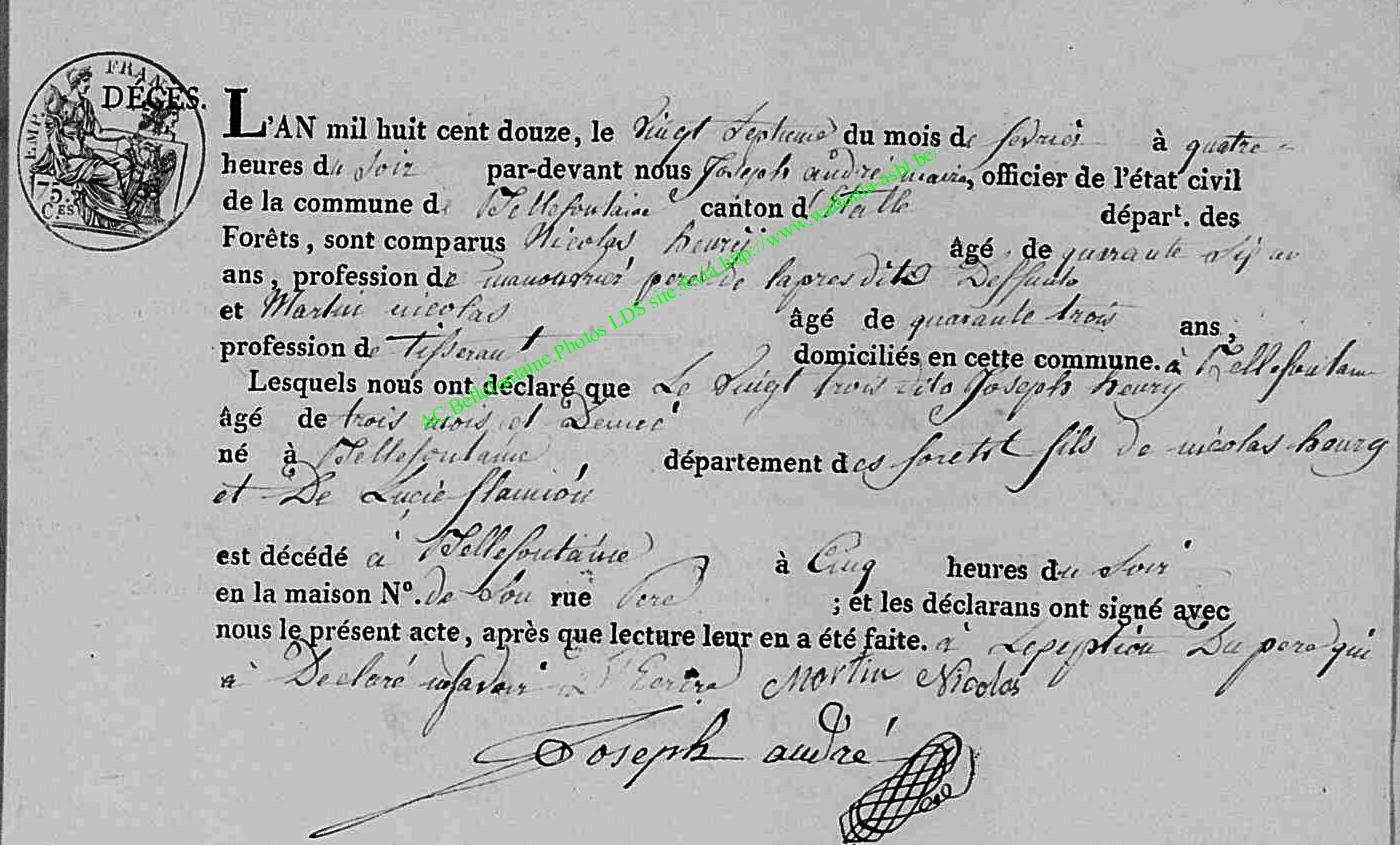 EMP. FRAN
75. CES
DÉCES.
L'AN mil huit cent douze, le vingt septieme du mois de fevrier à quatre
heures du soir par-devant nous Joseph andré maire, officier de l'état civil
de la commune de Bellefontaine canton d'Etalle départ. des
Forêts, sont comparus Nicolas henry âgé de quarante six an
ans, profession de manouvrier pere de lapres dite Deffunto
et Martin nicolas âgé de quarante trois ans,
profession de tisserant domiciliés en cette commune. à Bellefontaine
Lesquels nous ont déclaré que Le vingt trois dito Joseph henry
âgé de trois mois et Demie
né à Bellefontaine département des foretst fils de nicolas henry
et De Lucie flamion
est décédé a Bellefontaine à Cinq heures du soir
en la maison N°. de son rue Pere ; et les déclarans ont signé avec
nous le présent acte, après que lecture leur en a été faite. a Lepeption Du pere qui
a Declaré nsavoir D'Ecrire Martin Nicolas
Joseph andré
AC Bellefontaine Photos LDS site fevia http://www.wallonia-asbl.be/